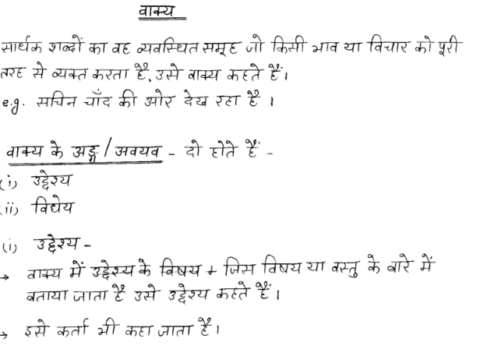 वाक्य
सार्थक शब्दों का वह व्यवस्थित समूह जो किसी भाव या विचार को पूरी
तरह से व्यक्त करता है, उसे वाक्य कहते हैं।
e.g. सचिन चाँद की ओर देख रहा है ।
वाक्य के अङ्ग / अवयव - दो होते हैं -
(i) उद्देश्य
(ii) विधेय
(i) उद्देश्य -
→ वाक्य में उद्देश्य के विषय + जिस विषय या वस्तु के बारे में
बताया जाता है उसे उद्देश्य कहते हैं।
→ इसे कर्ता भी कहा जाता है।